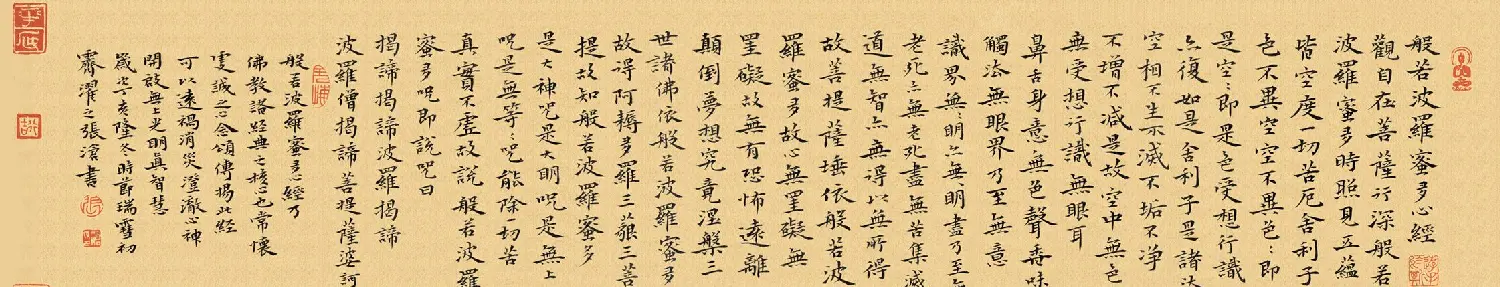 般若波羅蜜多心經
觀自在菩薩行深般若
波羅蜜多時照見五蘊
皆空度一切苦厄舍利子
色不異空空不異色：即
是空：即是色受想行識
亦復如是舍利子是諸法
空相不生不滅不垢不淨
不增不減是故空中無色
無受想行識無眼耳
鼻舌身意無色聲香味
觸法無眼界乃至無意
識界無：明亦無明盡乃至無
老死亦無老死盡無苦集滅
道無智亦無得以無所得
故菩提薩埵依般若波
羅蜜多故心無罣礙無
罣礙故無有恐怖遠離
顛倒夢想究竟涅槃三
世諸佛依般若波羅蜜多
故得阿耨多羅三藐三菩
提故知般若波羅蜜多
是大神咒是大明咒是無上
咒是無等：咒能除一切苦
真實不虛故說般若波羅
蜜多咒即說咒曰
揭諦揭諦波羅揭諦
波羅僧揭諦菩提薩婆訶
般若波羅蜜多心經乃
佛教諸經典之核心也常懷
虔誠之心念頌傳揚此經
可以遠禍消災澄澈心神
開啟無上光明真智慧
歲次亥隆冬時節瑞雪初
霽濯之張滄書